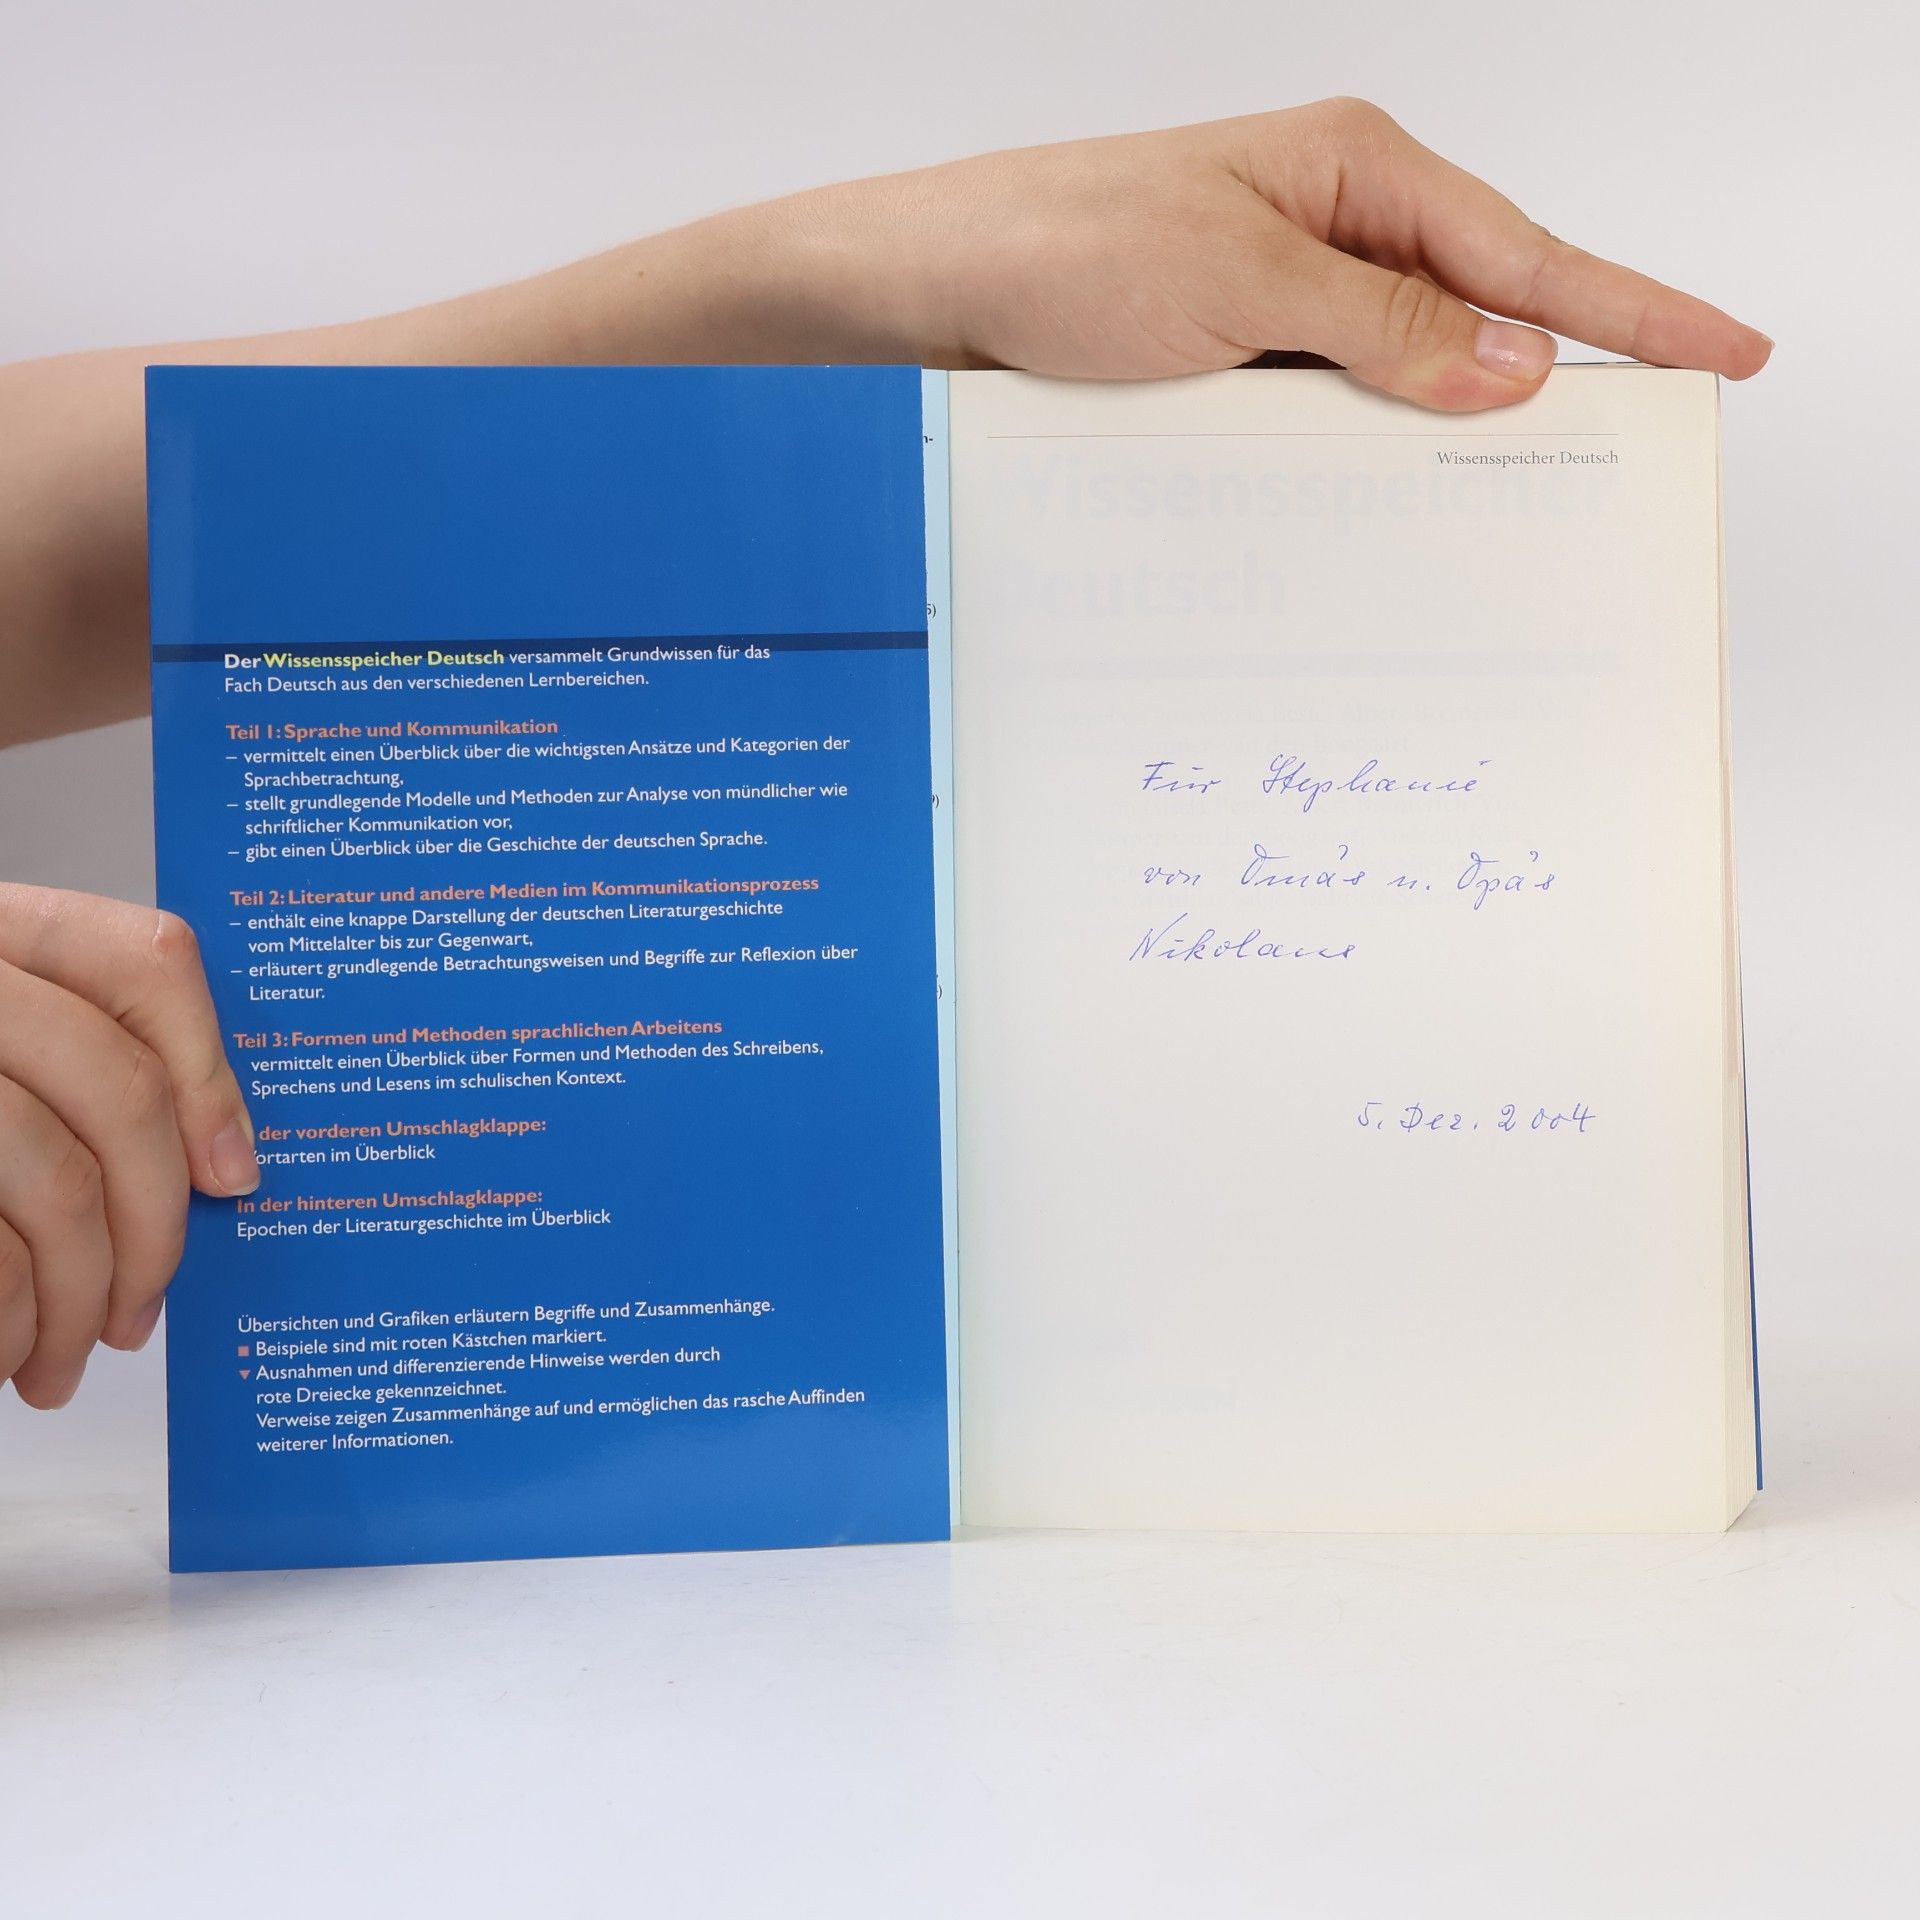 Der Wissensspeicher Deutsch versammelt Grundwissen für das
Fach Deutsch aus den verschiedenen Lernbereichen.
Teil 1: Sprache und Kommunikation
– vermittelt einen Überblick über die wichtigsten Ansätze und Kategorien der
Sprachbetrachtung,
– stellt grundlegende Modelle und Methoden zur Analyse von mündlicher wie
schriftlicher Kommunikation vor,
– gibt einen Überblick über die Geschichte der deutschen Sprache.
Teil 2: Literatur und andere Medien im Kommunikationsprozess
– enthält eine knappe Darstellung der deutschen Literaturgeschichte
vom Mittelalter bis zur Gegenwart,
– erläutert grundlegende Betrachtungsweisen und Begriffe zur Reflexion über
Literatur.
Teil 3: Formen und Methoden sprachlichen Arbeitens
vermittelt einen Überblick über Formen und Methoden des Schreibens,
Sprechens und Lesens im schulischen Kontext.
der vorderen Umschlagklappe:
ortarten im Überblick
In der hinteren Umschlagklappe:
Epochen der Literaturgeschichte im Überblick
Übersichten und Grafiken erläutern Begriffe und Zusammenhänge.
■ Beispiele sind mit roten Kästchen markiert.
▼ Ausnahmen und differenzierende Hinweise werden durch
rote Dreiecke gekennzeichnet.
Verweise zeigen Zusammenhänge auf und ermöglichen das rasche Auffinden
weiterer Informationen.
Wissensspeicher Deutsch
Wissensspeicher
Deutsch
Für Stephanie
von Oma's u. Opa's
Nikolaus
5. Dez. 2004